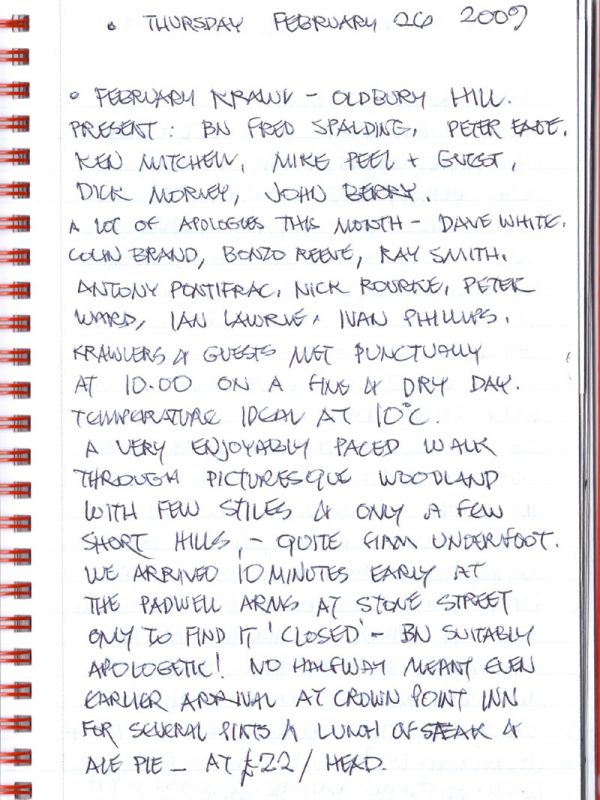 • THURSDAY FEBRUARY 26 2009
• FEBRUARY KRAWL - OLDBURY HILL.
PRESENT: BN FRED SPALDING, PETER EADE.
KEN MITCHELL, MIKE PEEL + GUEST,
DICK MORLEY, JOHN BERRY.
A LOT OF APOLOGIES THIS MONTH - DAVE WHITE.
COLIN BRAND, BONZO REEVE, RAY SMITH.
ANTONY PONTIFRAC, NICK ROURKE, PETER
WARD, IAN LAWRIE, IVAN PHILLIPS.
KRAWLERS & GUESTS MET PUNCTUALLY
AT 10.00 ON A FINE & DRY DAY.
TEMPERATURE IDEAL AT 10°C.
A VERY ENJOYABLY PACED WALK
THROUGH PICTURESQUE WOODLAND
WITH FEW STILES & ONLY A FEW
SHORT HILLS, - QUITE FIRM UNDERFOOT.
WE ARRIVED 10 MINUTES EARLY AT
THE PADWELL ARMS AT STONE STREET
ONLY TO FIND IT 'CLOSED' - BN SUITABLY
APOLOGETIC! NO HALFWAY MEANT EVEN
EARLIER ARRIVAL AT CROWN POINT INN
FOR SEVERAL PINTS & LUNCH OF STEAK &
ALE PIE - AT £22/HEAD.